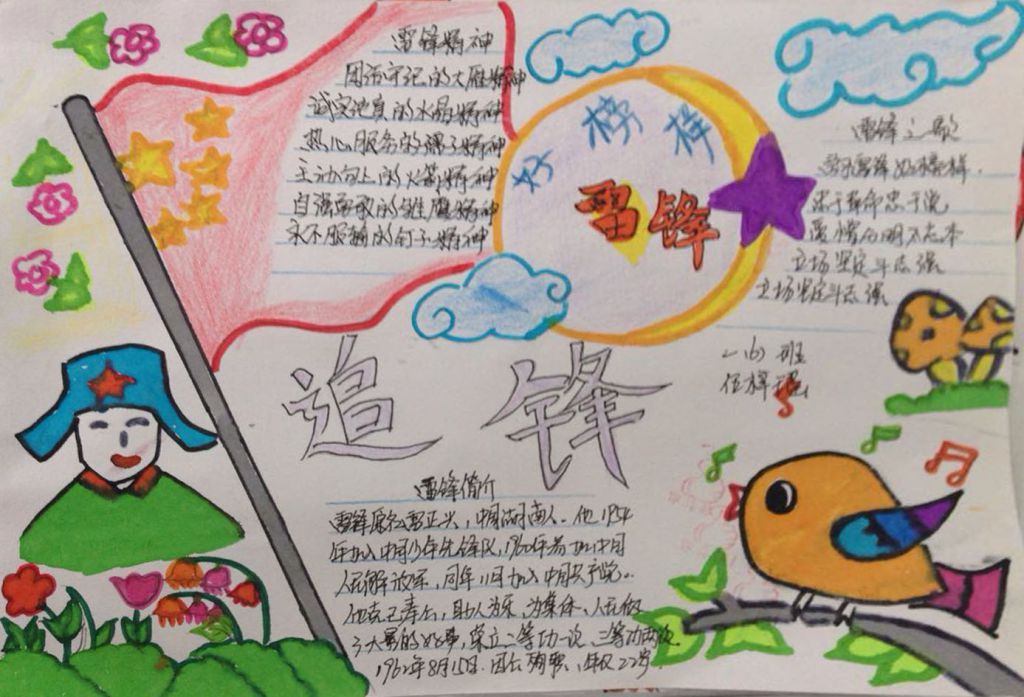 雷锋精神
团结守纪的大雁精神
诚实纯真的水晶精神
热心服务的骡子精神
主动向上的火箭精神
自强勇敢的雏鹰精神
永不服输的钉子精神
好榜样
雷锋
雷锋之歌
学习雷锋好榜样
忠于革命忠于党
爱憎分明不忘本
立场坚定斗志强
立场坚定斗志强
二(6)班
追锋
雷锋简介
雷锋原名雷正兴,中国湖南人。他1954
年加入中国少年先锋队,1960年参加中国
人民解放军,同年11月加入中国共产党。
他克己奉公,助人为乐,为集体、人民做
了大量的好事,荣立二等功一次,三等功两次
1962年8月15日.因公殉职,年仅22岁